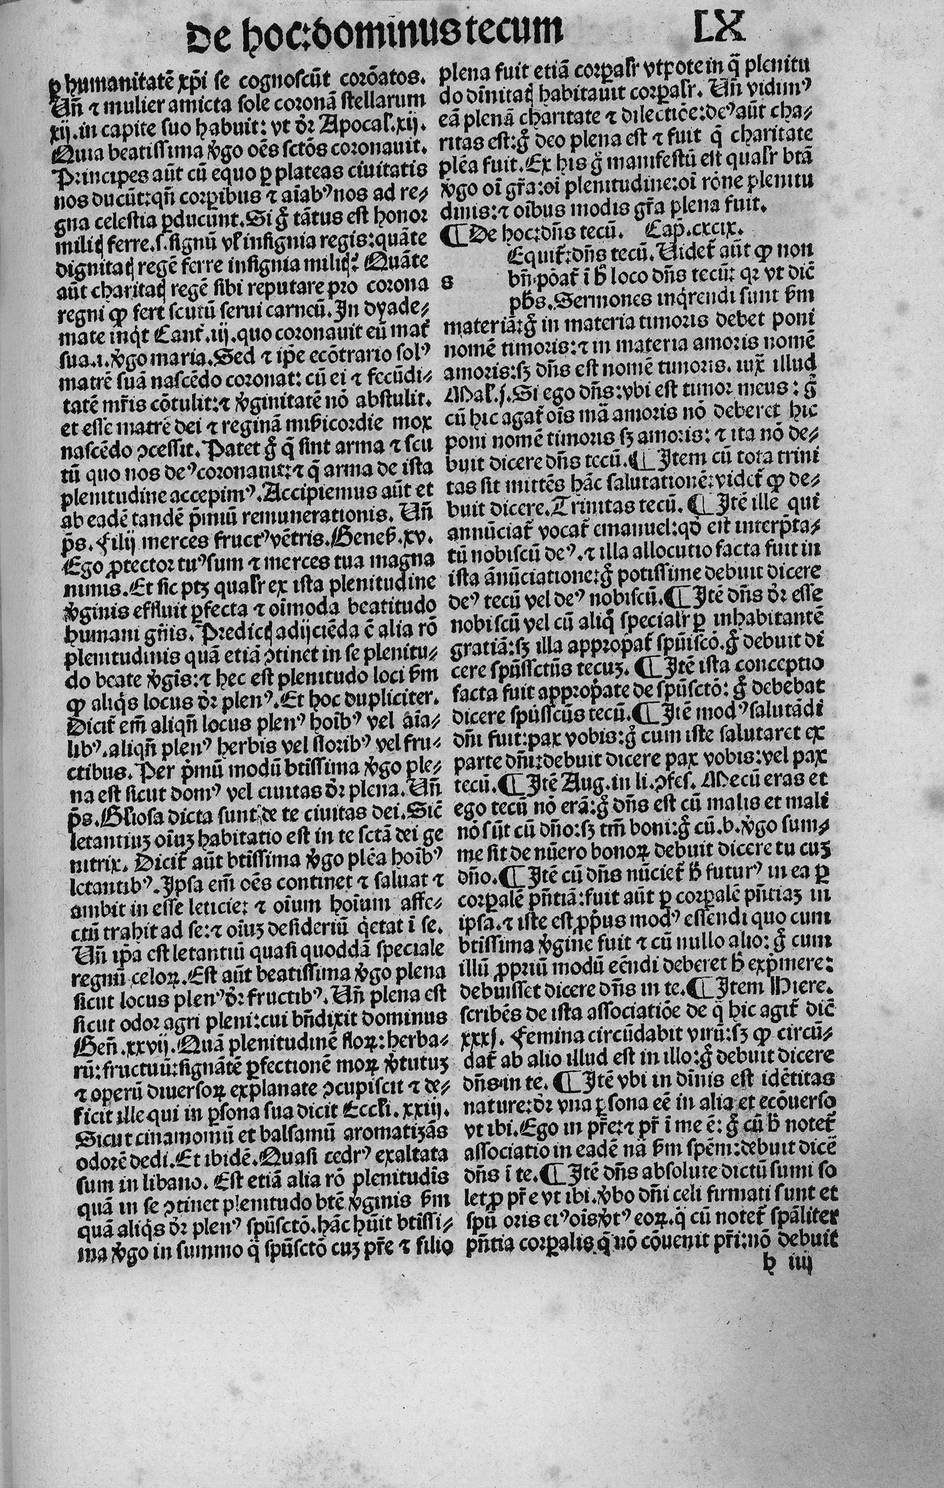 De hoc:dominus tecum LX
ꝑ humanitatē xp̄i se cognoscūt corōatos.
Uñ ⁊ mulier amicta sole coronā stellarum
xij.in capite suo habuit: vt dr̄ Apocal̓.xij.
Quia beatissima v̓go oēs sctōs coronauit.
Principes aūt cū equo ꝑ plateas ciuitatis
nos ducūt:qn̄ corꝑibus ⁊ aīabꝰ nos ad re-
gna celestia ꝑducunt.Si g̊ tātus est honor
militꝭ ferre.s.signū vl̓ insignia regis:quāte
dignitatꝭ regē ferre insignia militꝭ? Quāte
aūt charitatꝭ regē sibi reputare pro corona
regni ꝙ fert scutū serui carneū.In dyade-
mate inq̇t Cant̓.iij.quo coronauit eū mat̓
sua.i.v̓go maria.Sed ⁊ ip̄e ecōtrario solꝰ
matrē suā nascēdo coronat: cū ei ⁊ fecūdi-
tatē mr̄is cōtulit:⁊ v̓ginitatē nō abstulit.
et esse matrē dei ⁊ reginā mīb̓icordie mox
nascēdo ꝯcessit. Patet g̊ q̄ sint arma ⁊ scu
tū quo nos deꝰ coronauit:⁊ q̄ arma de ista
plenitudine accepimꝰ.Accipiemus aūt et
ab eadē tandē p̄miū remunerationis. Uñ
p̄s.Filij merces fructꝰ vētris.Geneb̓.xv.
Ego ꝓtector tuꝰ sum ⁊ merces tua magna
nimis.Et sic ptꝫ qualr̄ ex ista plenitudine
v̓ginis effluit ꝑfecta ⁊ oīmoda beatitudo
humani gn̄is. Predictꝭ adijciēda ē alia rō
plenitudinis quā etiā ꝯtinet in se plenitu-
do beate v̓gīs:⁊ hec est plenitudo loci ẜm
ꝙ aliq̇s locus dr̄ plenꝰ.Et hoc dupliciter.
Dicit̓ em̄ aliqn̄ locus plenꝰ hoībꝰ vel aīa-
libꝰ.aliqn̄ plenꝰ herbis vel floribꝰ vel fru-
ctibus. Per p̄mū modū btīssima v̓go ple-
na est sicut domꝰ vel ciuitas dr̄ plena. Uñ
p̄s.Gl̓iosa dicta sunt de te ciuitas dei.Sic̄
letantiuꝫ oīuꝫ habitatio est in te sctā dei ge
nitrix. Dicit̓ aūt btīssima v̓go plēa hoībꝰ
letantibꝰ.Ipsa em̄ oēs continet ⁊ saluat ⁊
ambit in esse leticie: ⁊ oīum hoīum affe-
ctū trahit ad se:⁊ oīuꝫ desideriū q̇etat ī se.
Uñ ip̄a est letantiū quasi quoddā speciale
regnū celoꝝ.Est aūt beatissima v̓go plena
sicut locus plenꝰ dr̄ fructibꝰ.Uñ plena est
sicut odor agri pleni:cui bn̄dixit dominus
Gen̄.xxvij.Quā plenitudinē floꝝ:herba-
rū:fructuū:signātē ꝑfectionē moꝝ v̓tutuꝫ
⁊ operū diuersoꝝ explanate ꝯcupiscit ⁊ de-
ficit ille qui in ꝑsona sua dicit Eccl̓i.xxiij.
Sicut cinamomū et balsamū aromatizās
odorē dedi.Et ibidē.Quasi cedrꝰ exaltata
sum in libano. Est etiā alia rō plenitudīs
quā in se ꝯtinet plenitudo btē v̓ginis ẜm
quā aliq̇s dr̄ plenꝰ spūsctō.hāc hūit btīssi-
ma v̓go in summo q̄ spūsctō cuꝫ pr̄e ⁊ filio
plena fuit etiā corꝑalr̄ vtpote in q̄ plenitu
do diūnitatꝭ habitauit corꝑalr̄. Uñ vidimꝰ
eā plenā charitate ⁊ dilectiōe:deꝰ aūt cha-
ritas est:g̊ deo plena est ⁊ fuit q̄ charitate
plēa fuit.Ex his g̊ manifestū est qualr̄ btā
v̓go oī gr̄a:oī plenitudine:oī rōne plenitu
dinis:⁊ oībus modis gr̄a plena fuit.
¶De hoc:dn̄s tecū. Cap̄.cxcix.
Equit̓:dn̄s tecū.Videt̓ aūt ꝙ non
s bn̄ pōat̓ ī h̓ loco dn̄s tecū: qꝛ vt dic̄
ph̄s.Sermones inq̇rendi sunt ẜm
materiā:g̊ in materia timoris debet poni
nomē timoris:⁊ in materia amoris nomē
amoris:sꝫ dn̄s est nomē timoris. iux̄ illud
Mal̓.j.Si ego dn̄s:vbi est timor meus: g̊
cū hic agat̓ oīs mā amoris nō deberet hic
poni nomē timoris sꝫ amoris: ⁊ ita nō de-
buit dicere dn̄s tecū.¶Item cū tota trini
tas sit mittēs hāc salutationē:videt̓ ꝙ de-
buit dicere.Trinitas tecū.¶Itē ille qui
annūciat̓ vocat̓ emanuel:qd̓ est interp̄ta-
tū nobiscū deꝰ.⁊ illa allocutio facta fuit in
ista ānūciatione:g̊ potissime debuit dicere
deꝰ tecū vel deꝰ nobiscū.¶Itē dn̄s dr̄ esse
nobiscū vel cū aliq̄ specialr̄ ꝑ inhabitantē
gratiā:sꝫ illa appropat̓ spūiscō.g̊ debuit di
cere spūssctūs tecuꝫ.¶Itē ista conceptio
facta fuit appropate de spūsctō: g̊ debebat
dicere spūsscūs tecū.¶Itē modꝰ salutādi
dn̄i fuit:pax vobis:g̊ cum iste salutaret ex
parte dn̄i:debuit dicere pax vobis:vel pax
tecū.¶Itē Aug.in li.ꝯfes. Mecū eras et
ego tecū nō erā:g̊ dn̄s est cū malis et mali
nō sūt cū dn̄o:sꝫ tm̄ boni:g̊ cū.b.v̓go sum-
me sit de nūero bonoꝝ debuit dicere tu cuꝫ
dn̄o.¶Itē cū dn̄s nūciet̓ h̓ futurꝰ in ea ꝑ
corꝑalē pn̄tiā:fuit aūt ꝑ corꝑalē pn̄tiaꝫ in
ipsa.⁊ iste est ꝓpriꝰ modꝰ essendi quo cum
btīssima v̓gine fuit ⁊ cū nullo alio: g̊ cum
illū ꝓpriū modū eēndi deberet h̓ exp̄mere:
debuisset dicere dn̄s in te.¶Item Hiere.
scribēs de ista associatiōe de q̄ hic agit̓ dic̄
xxxj. Femina circūdabit virū:sꝫ ꝙ circū-
dat̓ ab alio illud est in illo:g̊ debuit dicere
dn̄s in te.¶Itē vbi in diūnis est idētitas
nature:dr̄ vna ꝑsona eē in alia et ecōuerso
vt ibi.Ego in pr̄e:⁊ pr̄ ī me ē: g̊ cū h̓ notet̓
associatio in eadē nā ẜm spēm:debuit dicē
dn̄s ī te.¶Itē dn̄s absolute dictū sumi so
let ꝓ pr̄e vt ibi.v̓bo dn̄i celi firmati sunt et
spū oris eiꝰ oīs v̓tꝰ eoꝝ.q̄ cū notet̓ spāliter
pn̄tia corꝑalis q̄ nō cōuenit pr̄i:nō debuit
h iiij